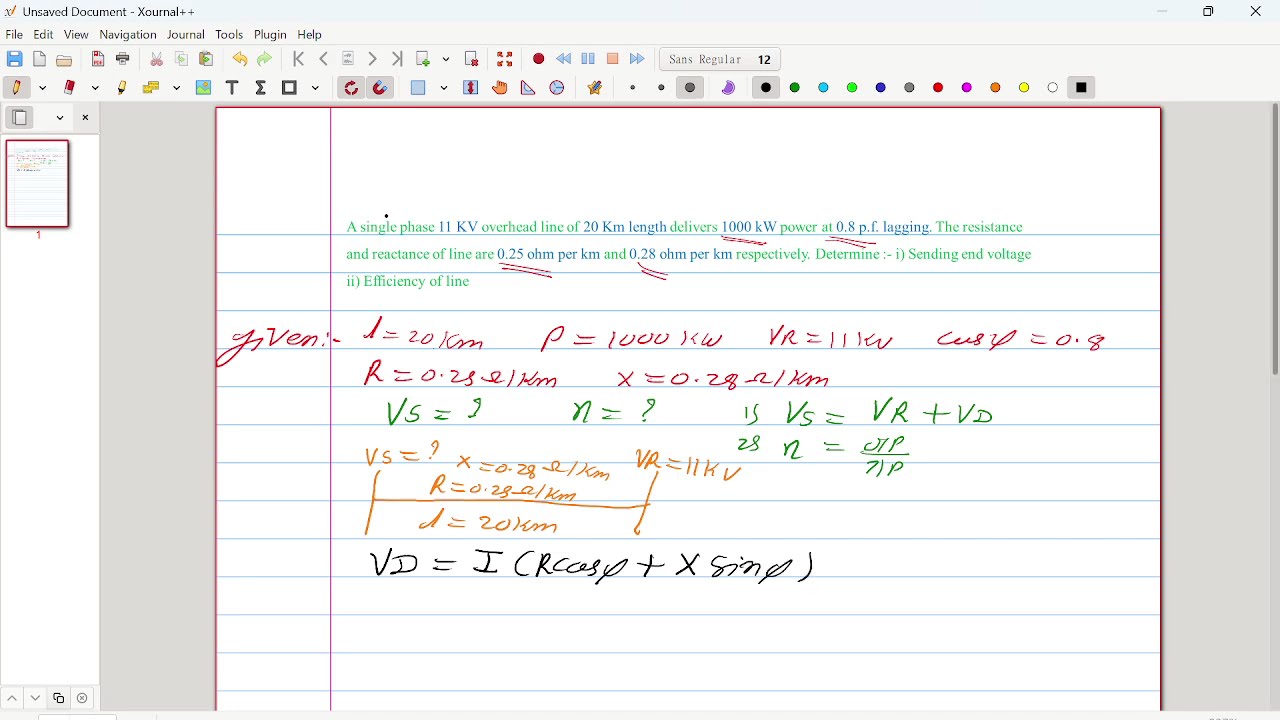 Unsaved Document - Xournal++
File Edit View Navigation Journal Tools Plugin Help
Sans Regular 12
1
A single phase 11 KV overhead line of 20 Km length delivers 1000 kW power at 0.8 p.f. lagging. The resistance
and reactance of line are 0.25 ohm per km and 0.28 ohm per km respectively. Determine :- i) Sending end voltage
ii) Efficiency of line
given:- l=20Km P=1000KW VR=11KV cosφ=0.8
R=0.25Ω/Km X=0.28Ω/Km
VS=? η=? 1) VS=VR+VD
2) η=O/P
I/P
VS=? X=0.28Ω/Km VR=11KV
R=0.25Ω/Km
l=20Km
VD=I(Rcosφ+Xsinφ)